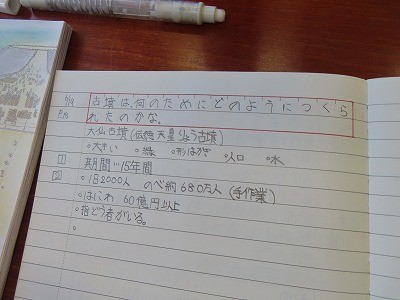 古墳は、何のためにどのようにつくら
れたのかな。
大仙古墳(伝徳天皇りょう古墳)
○大きい ○緑 ○形はかぎ ○人口 ○水
1 期間…15年間
2 ○1日2000人 のべ約680万人 (手作業)
○はにわ 60億円以上
○指どう者がいる。
○